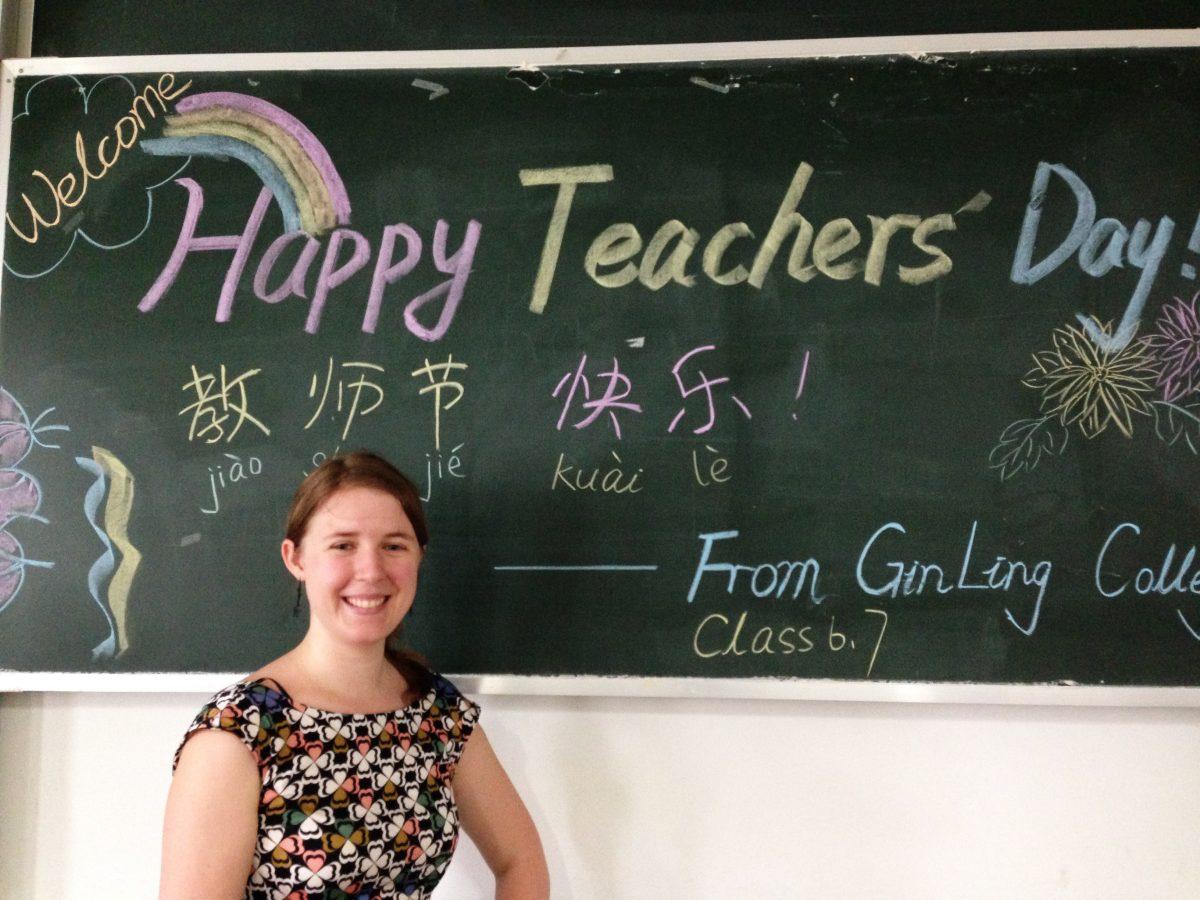 Welcome
Happy Teachers' Day!
教师节 快乐!
jiào jié kuài lè
From GinLing Colle
Class 6.7